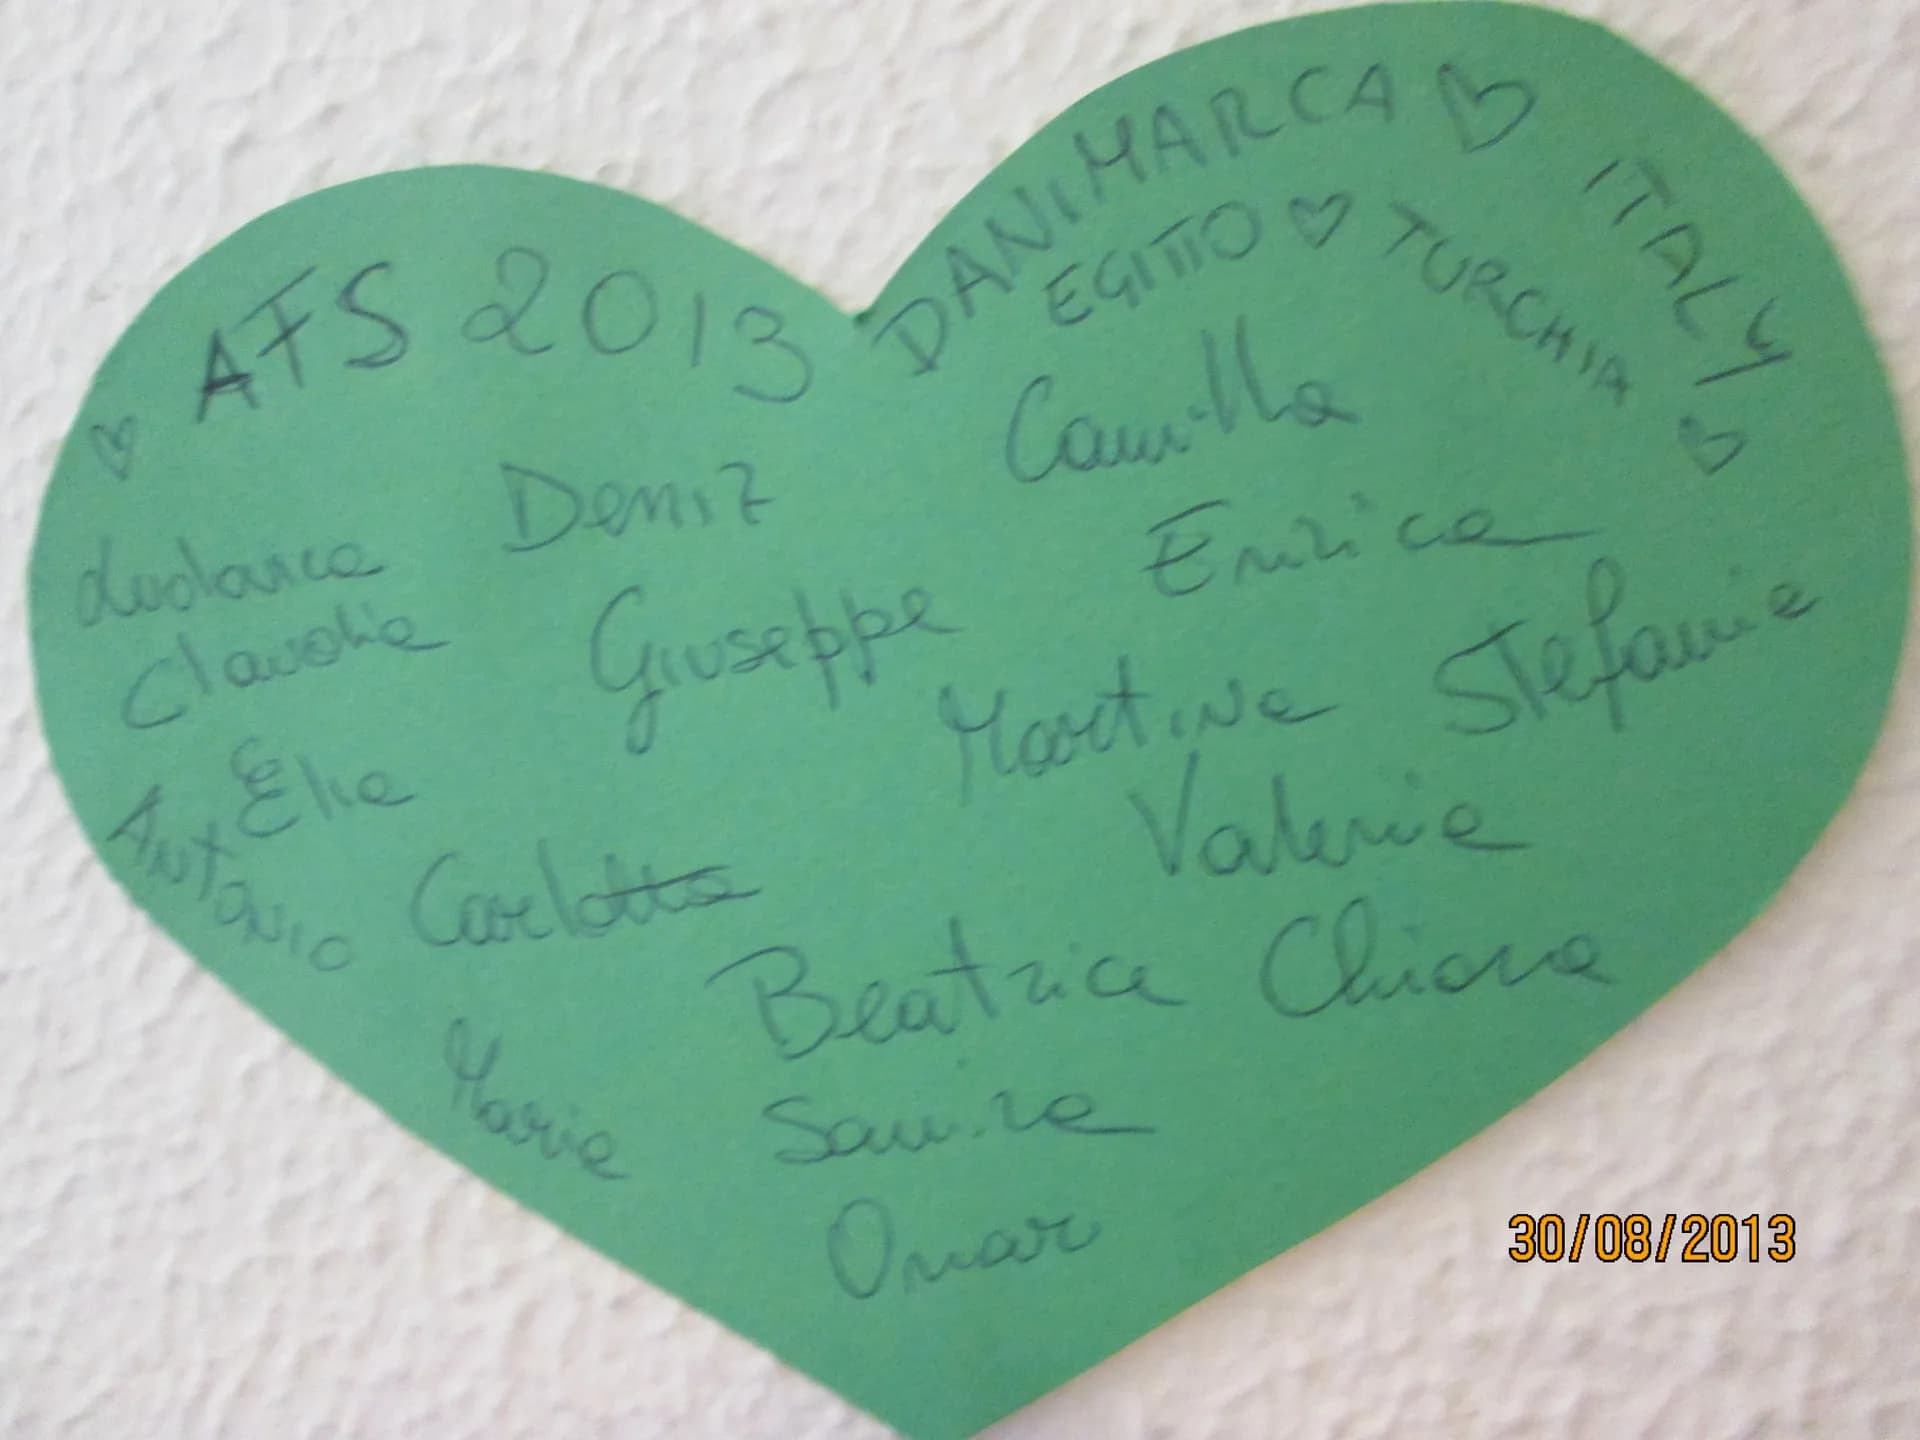 ♡ AFS 2013
DANIMARCA ♡ ITALY ♡
EGITTO ♡ TURCHIA
Camilla
Deniz
Enrica
Ludovica
Claudia
Giuseppe
Martina
Stefania
Elia
Valeria
Antonio
Carlotta
Beatrice
Chiara
Maria
Samira
Omar
30/08/2013